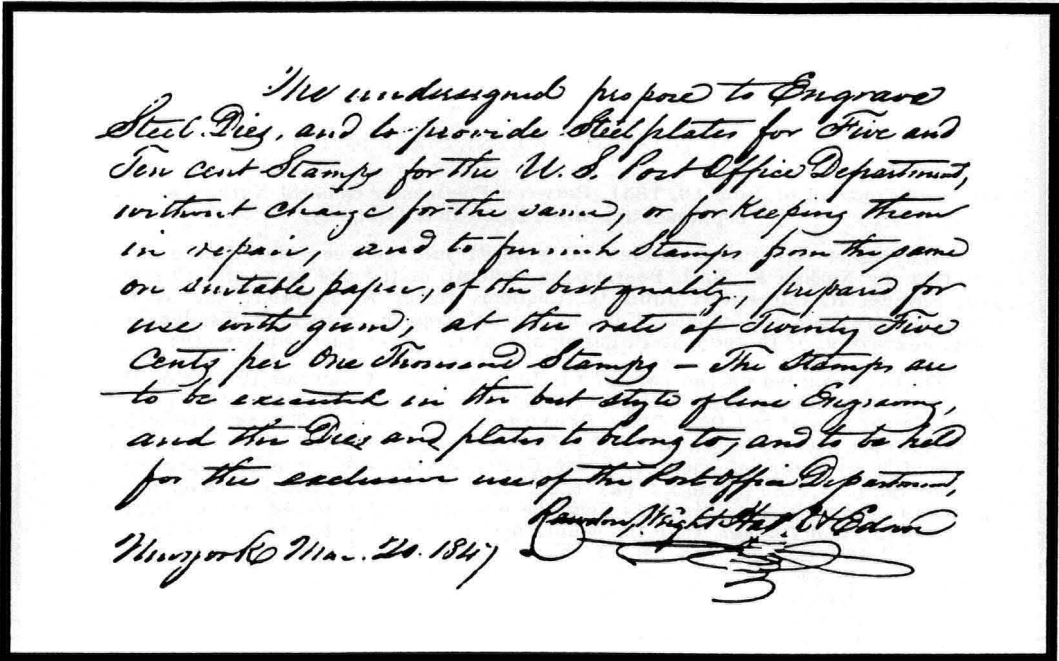 The undersigned propose to Engrave
Steel Dies, and to provide Steel plates for Five and
Ten cent Stamps for the U. S. Post Office Department,
without charge for the same, or for Keeping them
in repair, and to furnish Stamps from the same
on suitable paper, of the best quality, prepared for
use with gum, at the rate of Twenty Five
Cents per One Thousand Stamps – The Stamps are
to be executed in the best style of line Engraving,
and the Dies and plates to belong to, and to be held
for the exclusive use of the Post Office Department,
Rawdon, Wright Hatch & Edson
New York Mar. 20. 1847